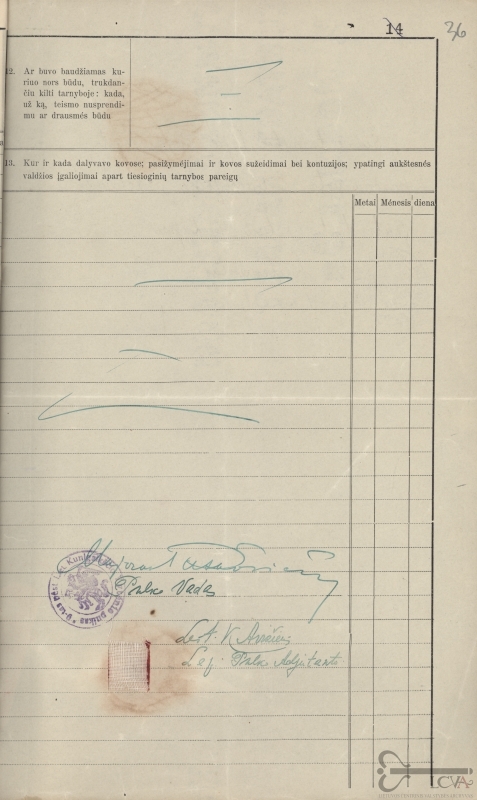 14
36
12. Ar buvo baudžiamas ku-
riuo nors būdu, trukdan-
čiu kilti tarnyboje: kada,
už ką, teismo nusprendi-
mu ar drausmės būdu
13. Kur ir kada dalyvavo kovose; pasižymėjimai ir kovos sužeidimai bei kontuzijos; ypatingi aukštesnės
valdžios įgaliojimai apart tiesioginių tarnybos pareigų
Metai Mėnesis diena
Pulko Vadas
Leit.
Pulko Adjutants
LCVA